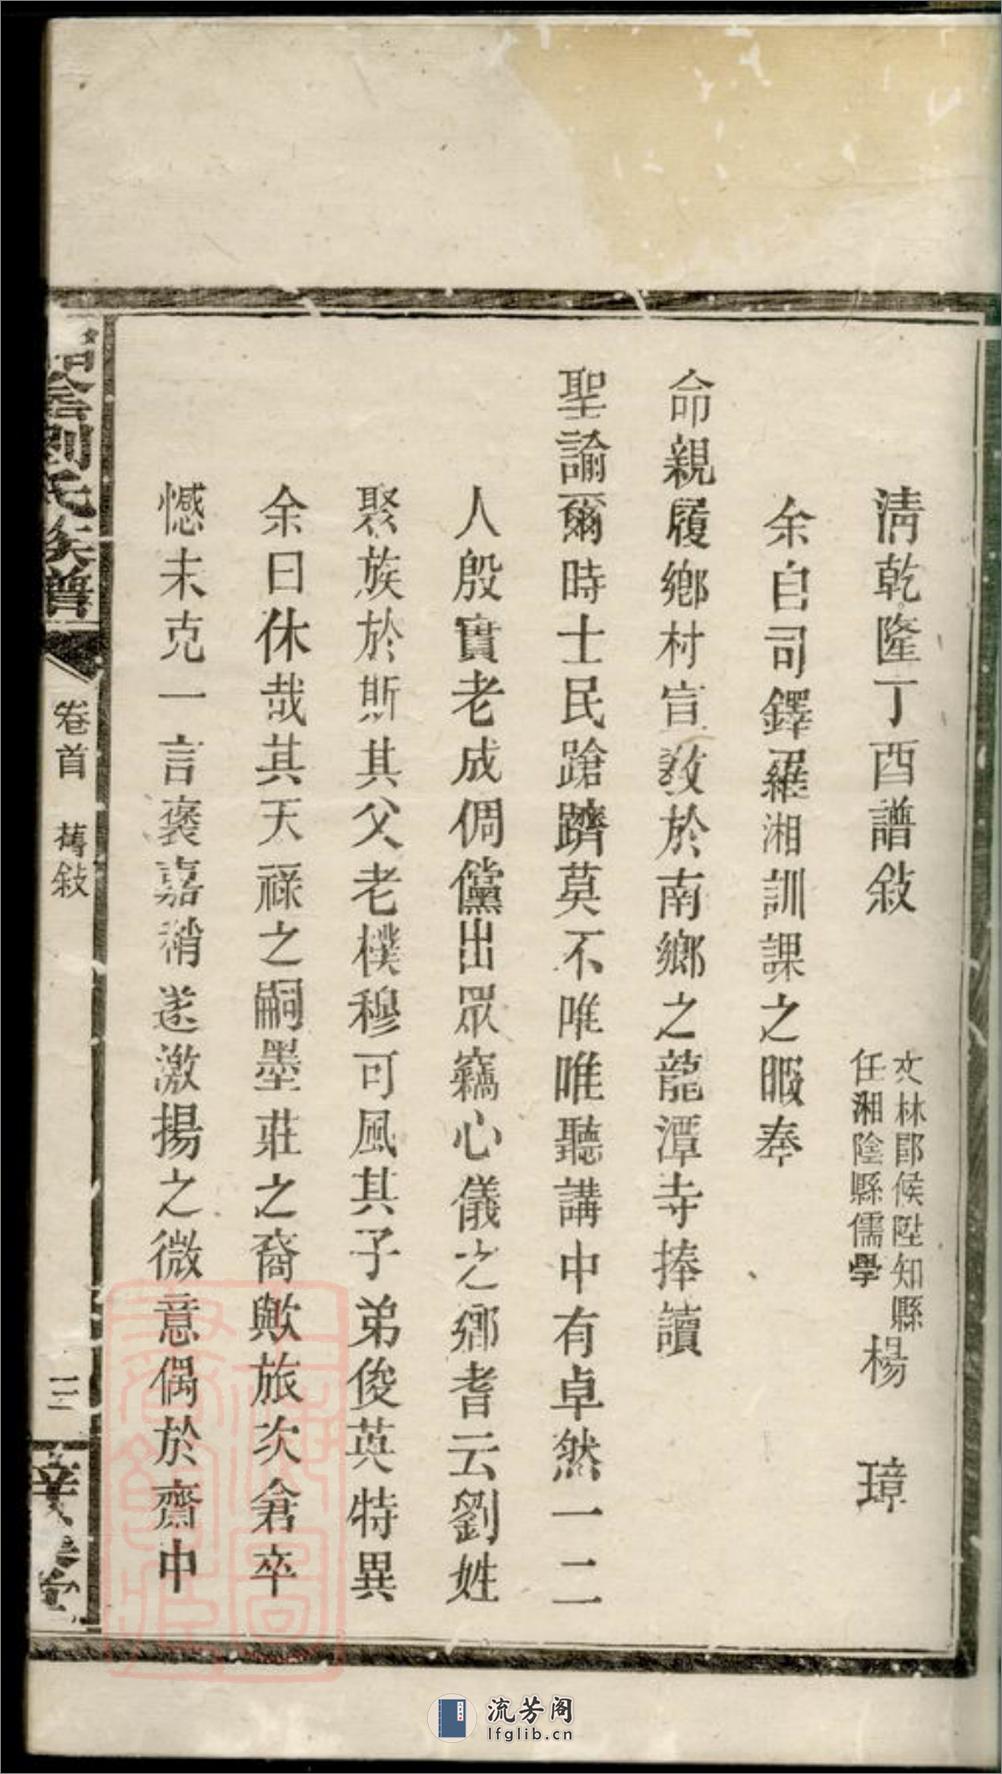 清乾隆丁酉譜敘
文林郎候陞知縣
任湘陰縣儒學
楊璋
余自司鐸羅湘訓課之暇奉
命親履鄉村宣教於南鄉之龍潭寺捧讀
聖諭爾時士民蹌躋莫不唯唯聽講中有卓然一二
人殷實老成倜儻出眾竊心儀之鄉耆云劉姓
聚族於斯其父老樸穆可風其子弟俊英特異
余曰休哉其天祿之嗣墨莊之裔歟旅次倉卒
憾未克一言褒嘉稍遂激揚之微意偶於齋中
劉氏族譜
卷首 舊敘
三
堂
流芳阁
lfglib.cn